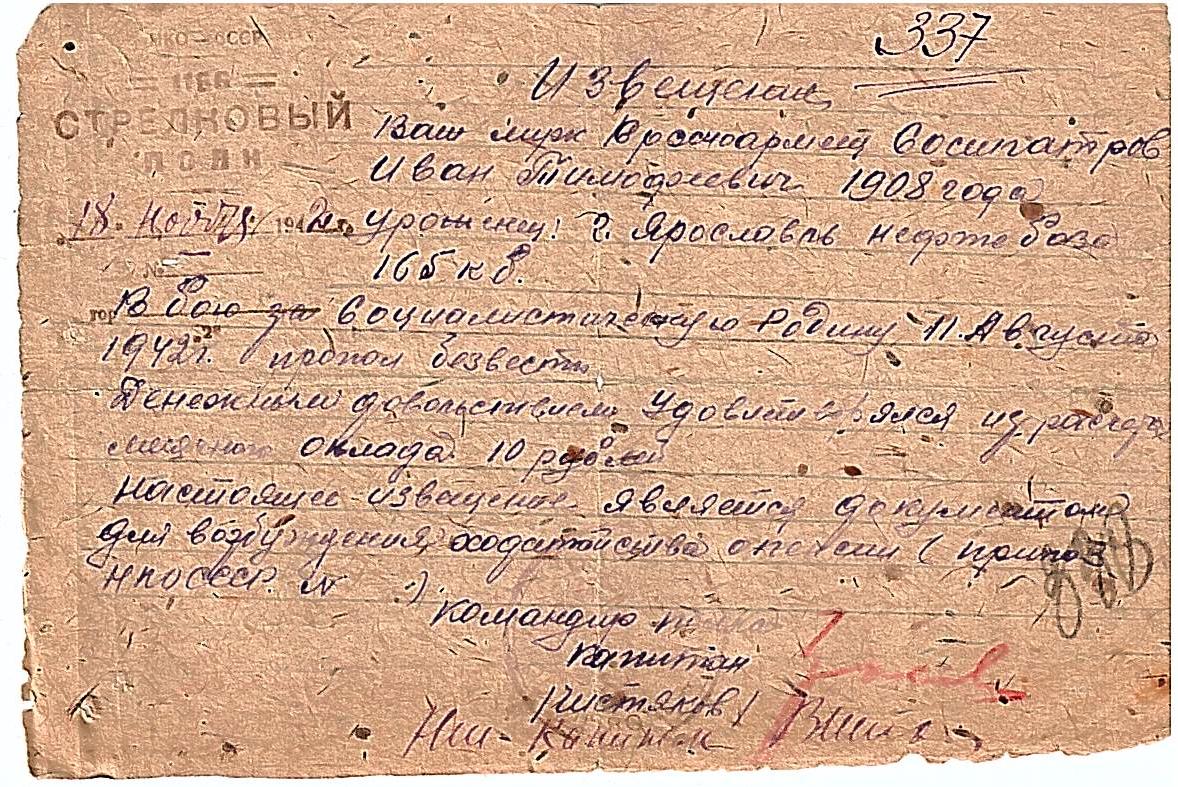 НКО — СССР
337
Извещение
СТРЕЛКОВЫЙ
ПОЛК
Ваш муж Красноармеец Сосипатров
Иван Тимофеевич 1908 года
18. ноября 1942 г. урожениц: г. Ярославль нефтебаза
№ 165 кв.
гор
В бою за социалистическую Родину 11. Августа
1942 г. пропал безвести
Денежным довольствием удовлетворялся из расчета
месячного оклада 10 рублей
настоящее извещение является документом
для возбуждения ходатайства о пенсии (приказ
НКО СССР. №)
Командир полка
Капитан
/Чистяков/
Капитан